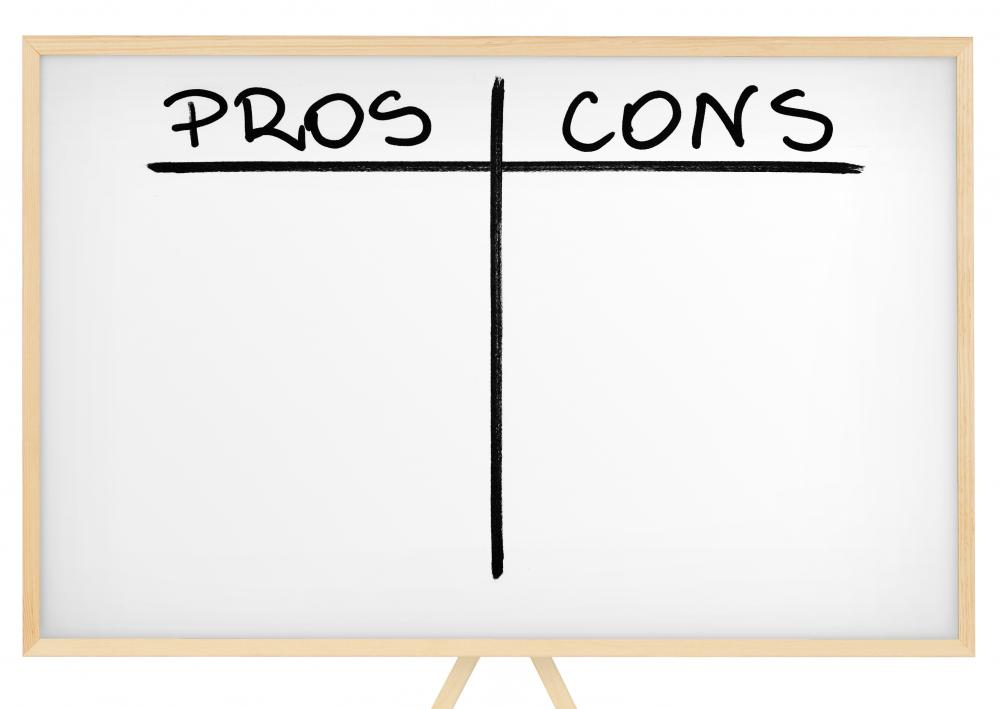 PROS CONS